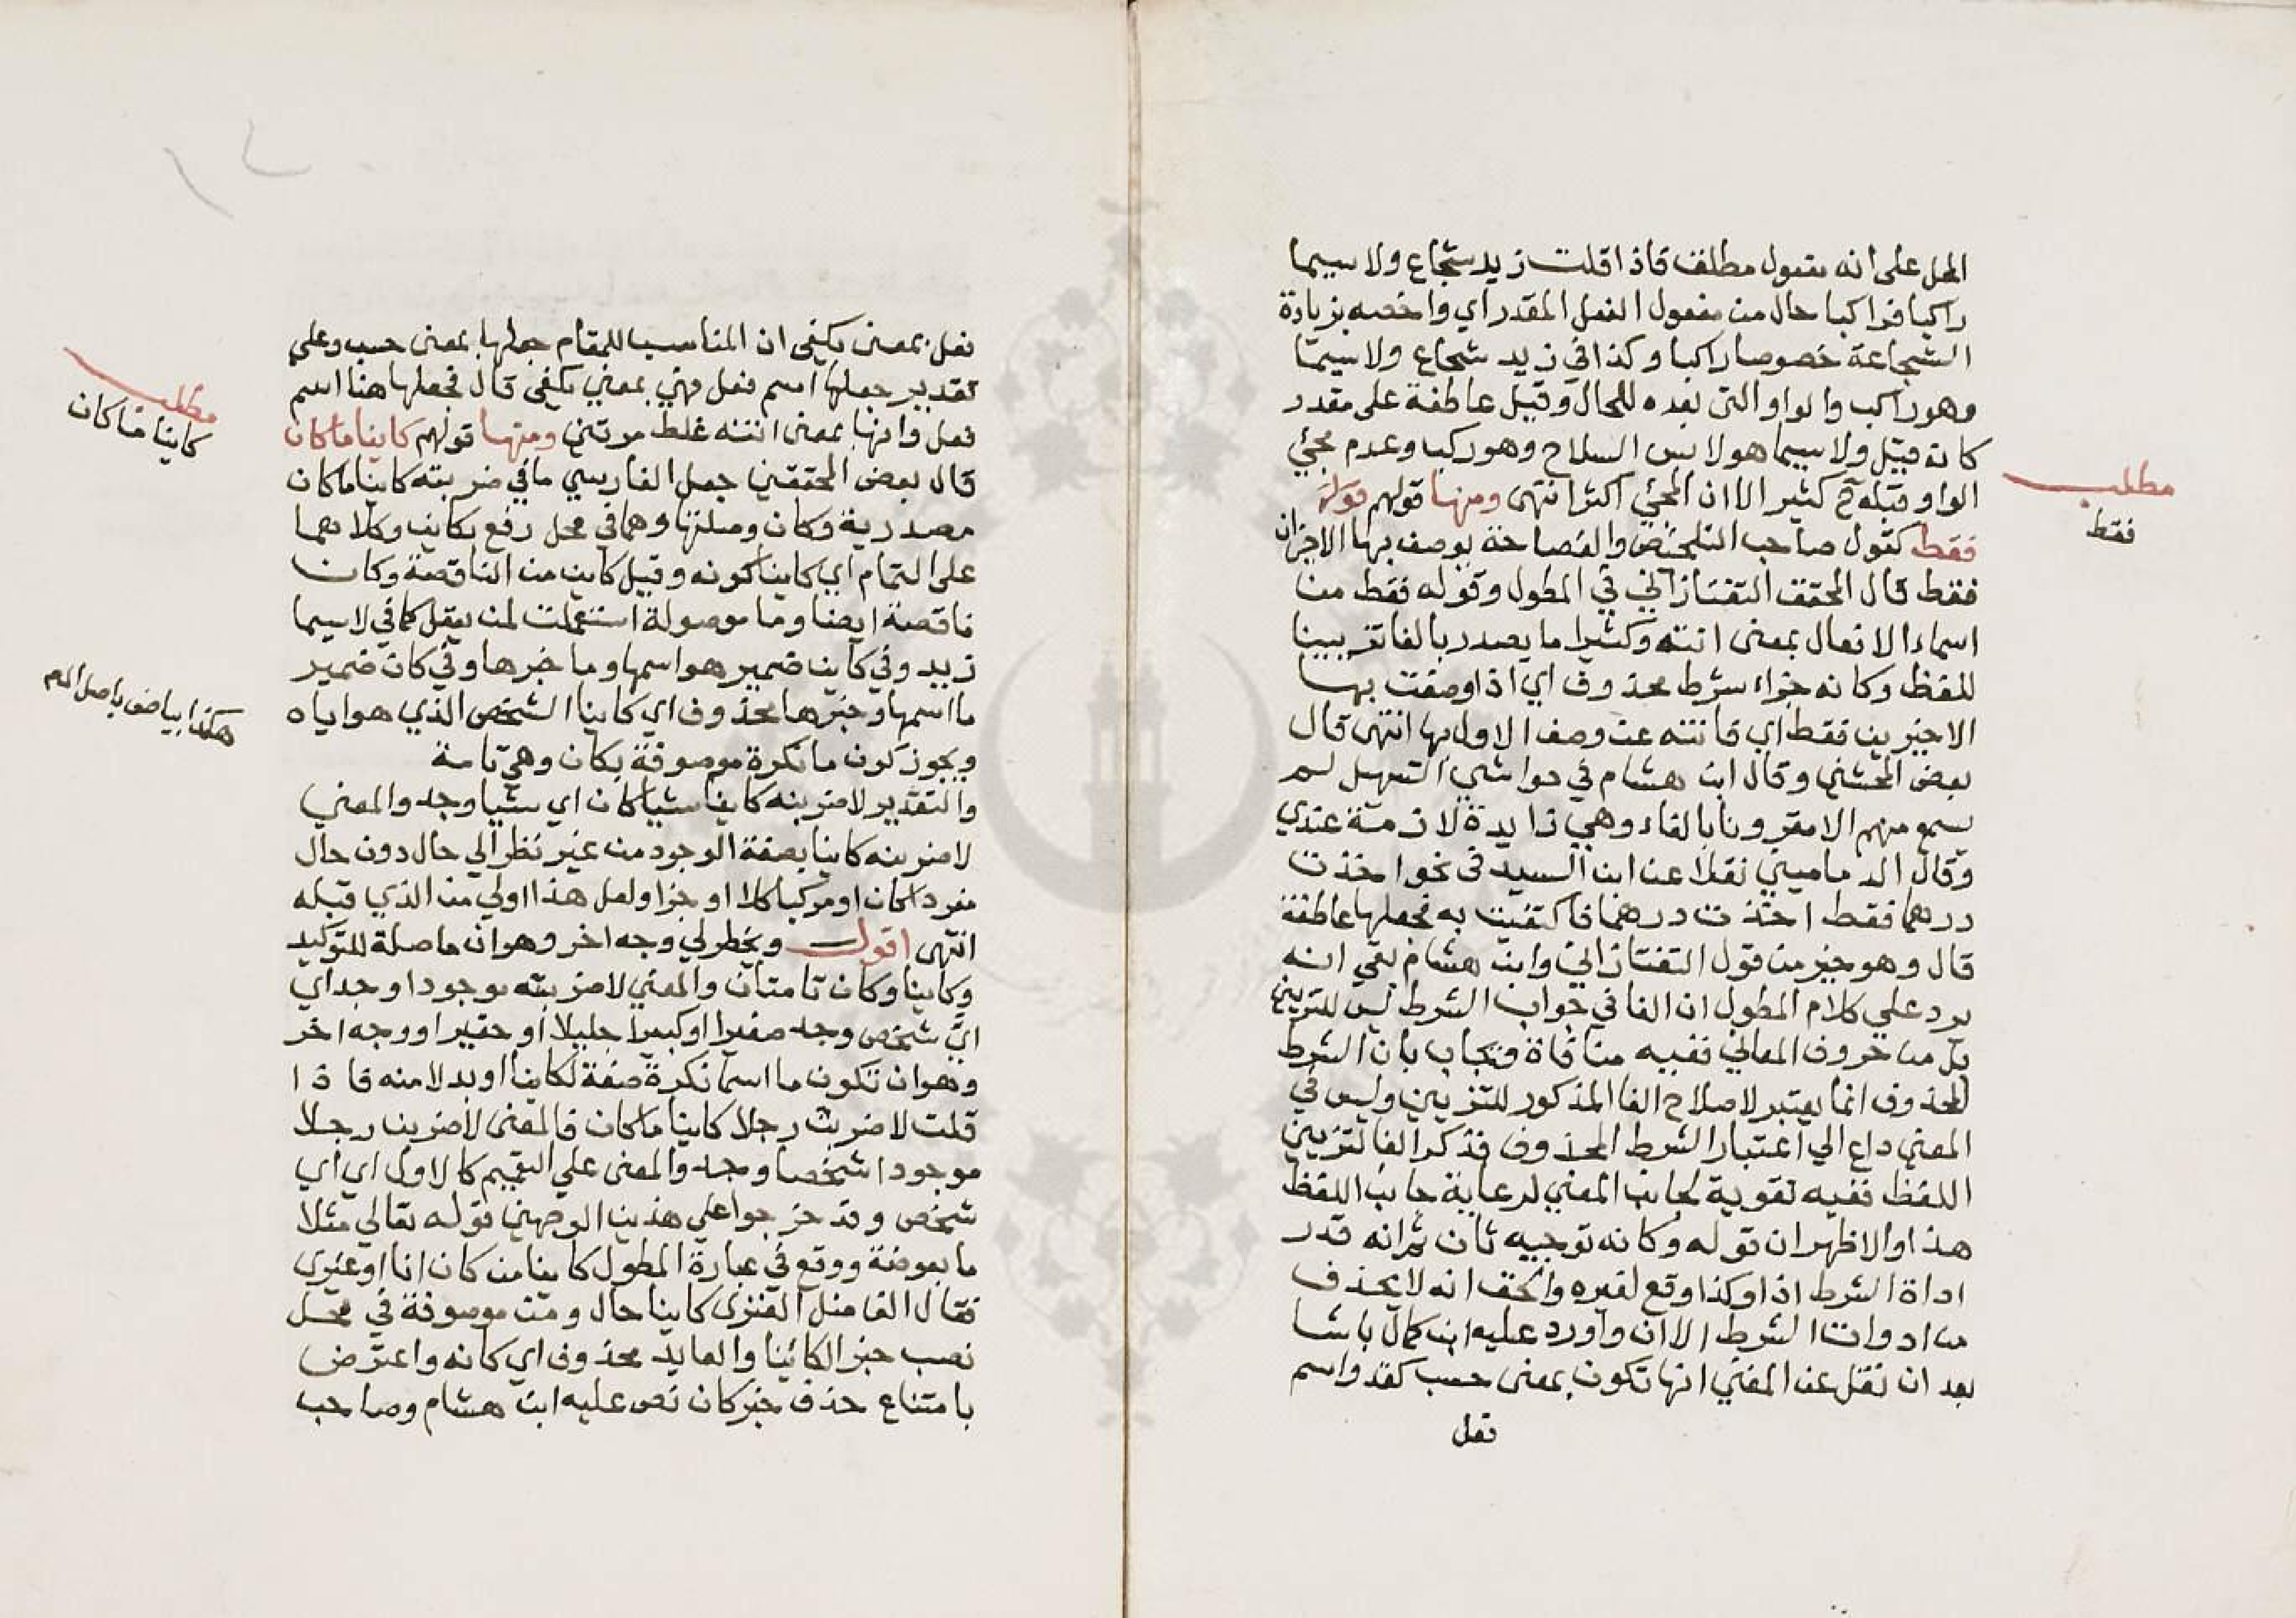 المحل على انه مفعول مطلق فاذا قلت زيد شجاع ولا سيما
راكبا فراكبا حال من مفعول الفعل المقدر اي واخصه بزيادة
الشجاعة خصوصا راكبا وكذا في زيد شجاع ولا سيما
وهو راكب والواو التي بعده للحال وقيل عاطفة على مقدر
كانه قيل ولا سيما هو لابس السلاح وهو راكب وعدم مجئ
الواو قبله ح كثير الا ان المجئ اكثر انتهى ومنها قولهم قوله
فقط كقول صاحب التلخيص والفصاحة يوصف بها الاخيران
فقط قال المحقق التفتازاني في المطول وقوله فقط من
اسماء الافعال بمعنى انته وكثيرا ما يصدر بالفا تزيينا
للفظ وكانه جزاء شرط محذوف اي اذا وصفت بها
الاخيرين فقط اي فانته عن وصف الاول بها انتهى قال
بعض المحشين وقال ابن هشام في حواشي التسهيل لم
يسمع منهم الا مقرونا بالفاء وهي زايدة لازمة عندي
وقال الدماميني نقلا عن ابن السيد في نحو اخذت
درهما فقط اخذت درهما فاكتفيت به فجعلها عاطفة
قال وهو خير من قول التفتازاني وابن هشام بقي انه
يرد على كلام المطول ان الفا في جواب الشرط ليس للتزيين
بل من حروف المعاني ففيه منافاة ويجاب بان الشرط
المحذوف انما يعتبر لاصلاح الفا المذكور للتزيين وليس في
المعنى داع الي اعتبار الشرط المحذوف فذكر الفا لتزيين
اللفظ ففيه تقوية لجانب المعني لرعاية جانب اللفظ
هذا والاظهر ان قوله وكانه توجيه ثان ثم انه قدر
اداة الشرط اذا وكذا وقع لغيره والحق انه لا يحذف
من ادوات الشرط الا ان واورد عليه ابن كمال باشا
بعد ان نقل عن المغني انها تكون بمعنى حسب كقد واسم
فعل
مطلب
فقط
فعل بمعنى يكفي ان المناسب للمقام جعلها بمعنى حسب وعلي
تقدير جعلها اسم فعل فهي بمعني يكفي قال فجعلها هنا اسم
فعل وانها بمعنى انته غلط مرتين ومنها قولهم كاينا ما كان
قال بعض المحققين جعل الفارسي ما في ضربته كاينا ما كان
مصدرية وكان وصلتها وهما في محل رفع بكاين وكلاهما
على التمام اي كاينا كونه وقيل كاين من الناقصة وكان
ناقصة ايضا وما موصولة استعملت لمن يعقل كما في لا سيما
زيد وفي كاينا ضمير هو اسمها وما خبرها وفي كان ضمير
ما اسمها وخبرها محذوف اي كاينا الشخص الذي هو اياه
ويجوز كون ما نكرة موصوفة بكان وهي تامة
والتقدير لاضربنه كاينا شيا كان اي شيا وجد والمعني
لاضربنه كاينا بصفة الوجود من غير نظر الي حال دون حال
مفردا كان او مركبا كلا او جزا ولعل هذا اولي من الذي قبله
انتهى اقول ويخطر لي وجه اخر وهو ان ما صلة للتوكيد
وكاينا وكان تامتان والمعني لاضربنه موجودا وجد اي
اي شخص وجد صغيرا او كبيرا جليلا او حقيرا ووجه اخر
وهو ان تكون ما اسما نكرة صفة لكاينا او بدلا منه فاذا
قلت لاضربن رجلا كاينا ما كان فالمعنى لاضربن رجلا
موجودا شخصا وجد والمعنى علي التعميم كالاول اي اي
شخص وقد خرجوا علي هذين الوجهين قوله تعالي مثلا
ما بعوضة ووقع في عبارة المطول كاينا من كان انا او غيري
فقال الفاضل الفنري كاينا حال ومن موصوفة في محل
نصب خبر الكائنا والعايد محذوف اي كانه واعترض
بامتناع حذف خبر كان نص عليه ابن هشام وصاحب
مطلب
كاينا ما كان
هكذا بياض باصل الم